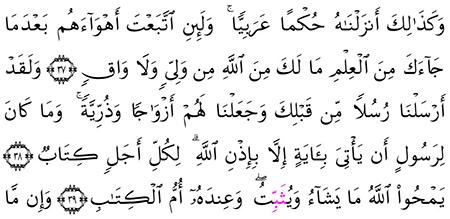 وَكَذَٰلِكَ أَنزَلْنَٰهُ حُكْمًا عَرَبِيًّا ۚ وَلَئِنِ ٱتَّبَعْتَ أَهْوَآءَهُم بَعْدَمَا
جَآءَكَ مِنَ ٱلْعِلْمِ مَا لَكَ مِنَ ٱللَّهِ مِن وَلِىٍّ وَلَا وَاقٍ ﴿٣٧﴾ وَلَقَدْ
أَرْسَلْنَا رُسُلًا مِّن قَبْلِكَ وَجَعَلْنَا لَهُمْ أَزْوَٰجًا وَذُرِّيَّةً ۚ وَمَا كَانَ
لِرَسُولٍ أَن يَأْتِىَ بِـَٔايَةٍ إِلَّا بِإِذْنِ ٱللَّهِ ۗ لِكُلِّ أَجَلٍ كِتَابٌ ﴿٣٨﴾
يَمْحُوا۟ ٱللَّهُ مَا يَشَآءُ وَيُثْبِتُ ۖ وَعِندَهُۥٓ أُمُّ ٱلْكِتَٰبِ ﴿٣٩﴾ وَإِن مَّا